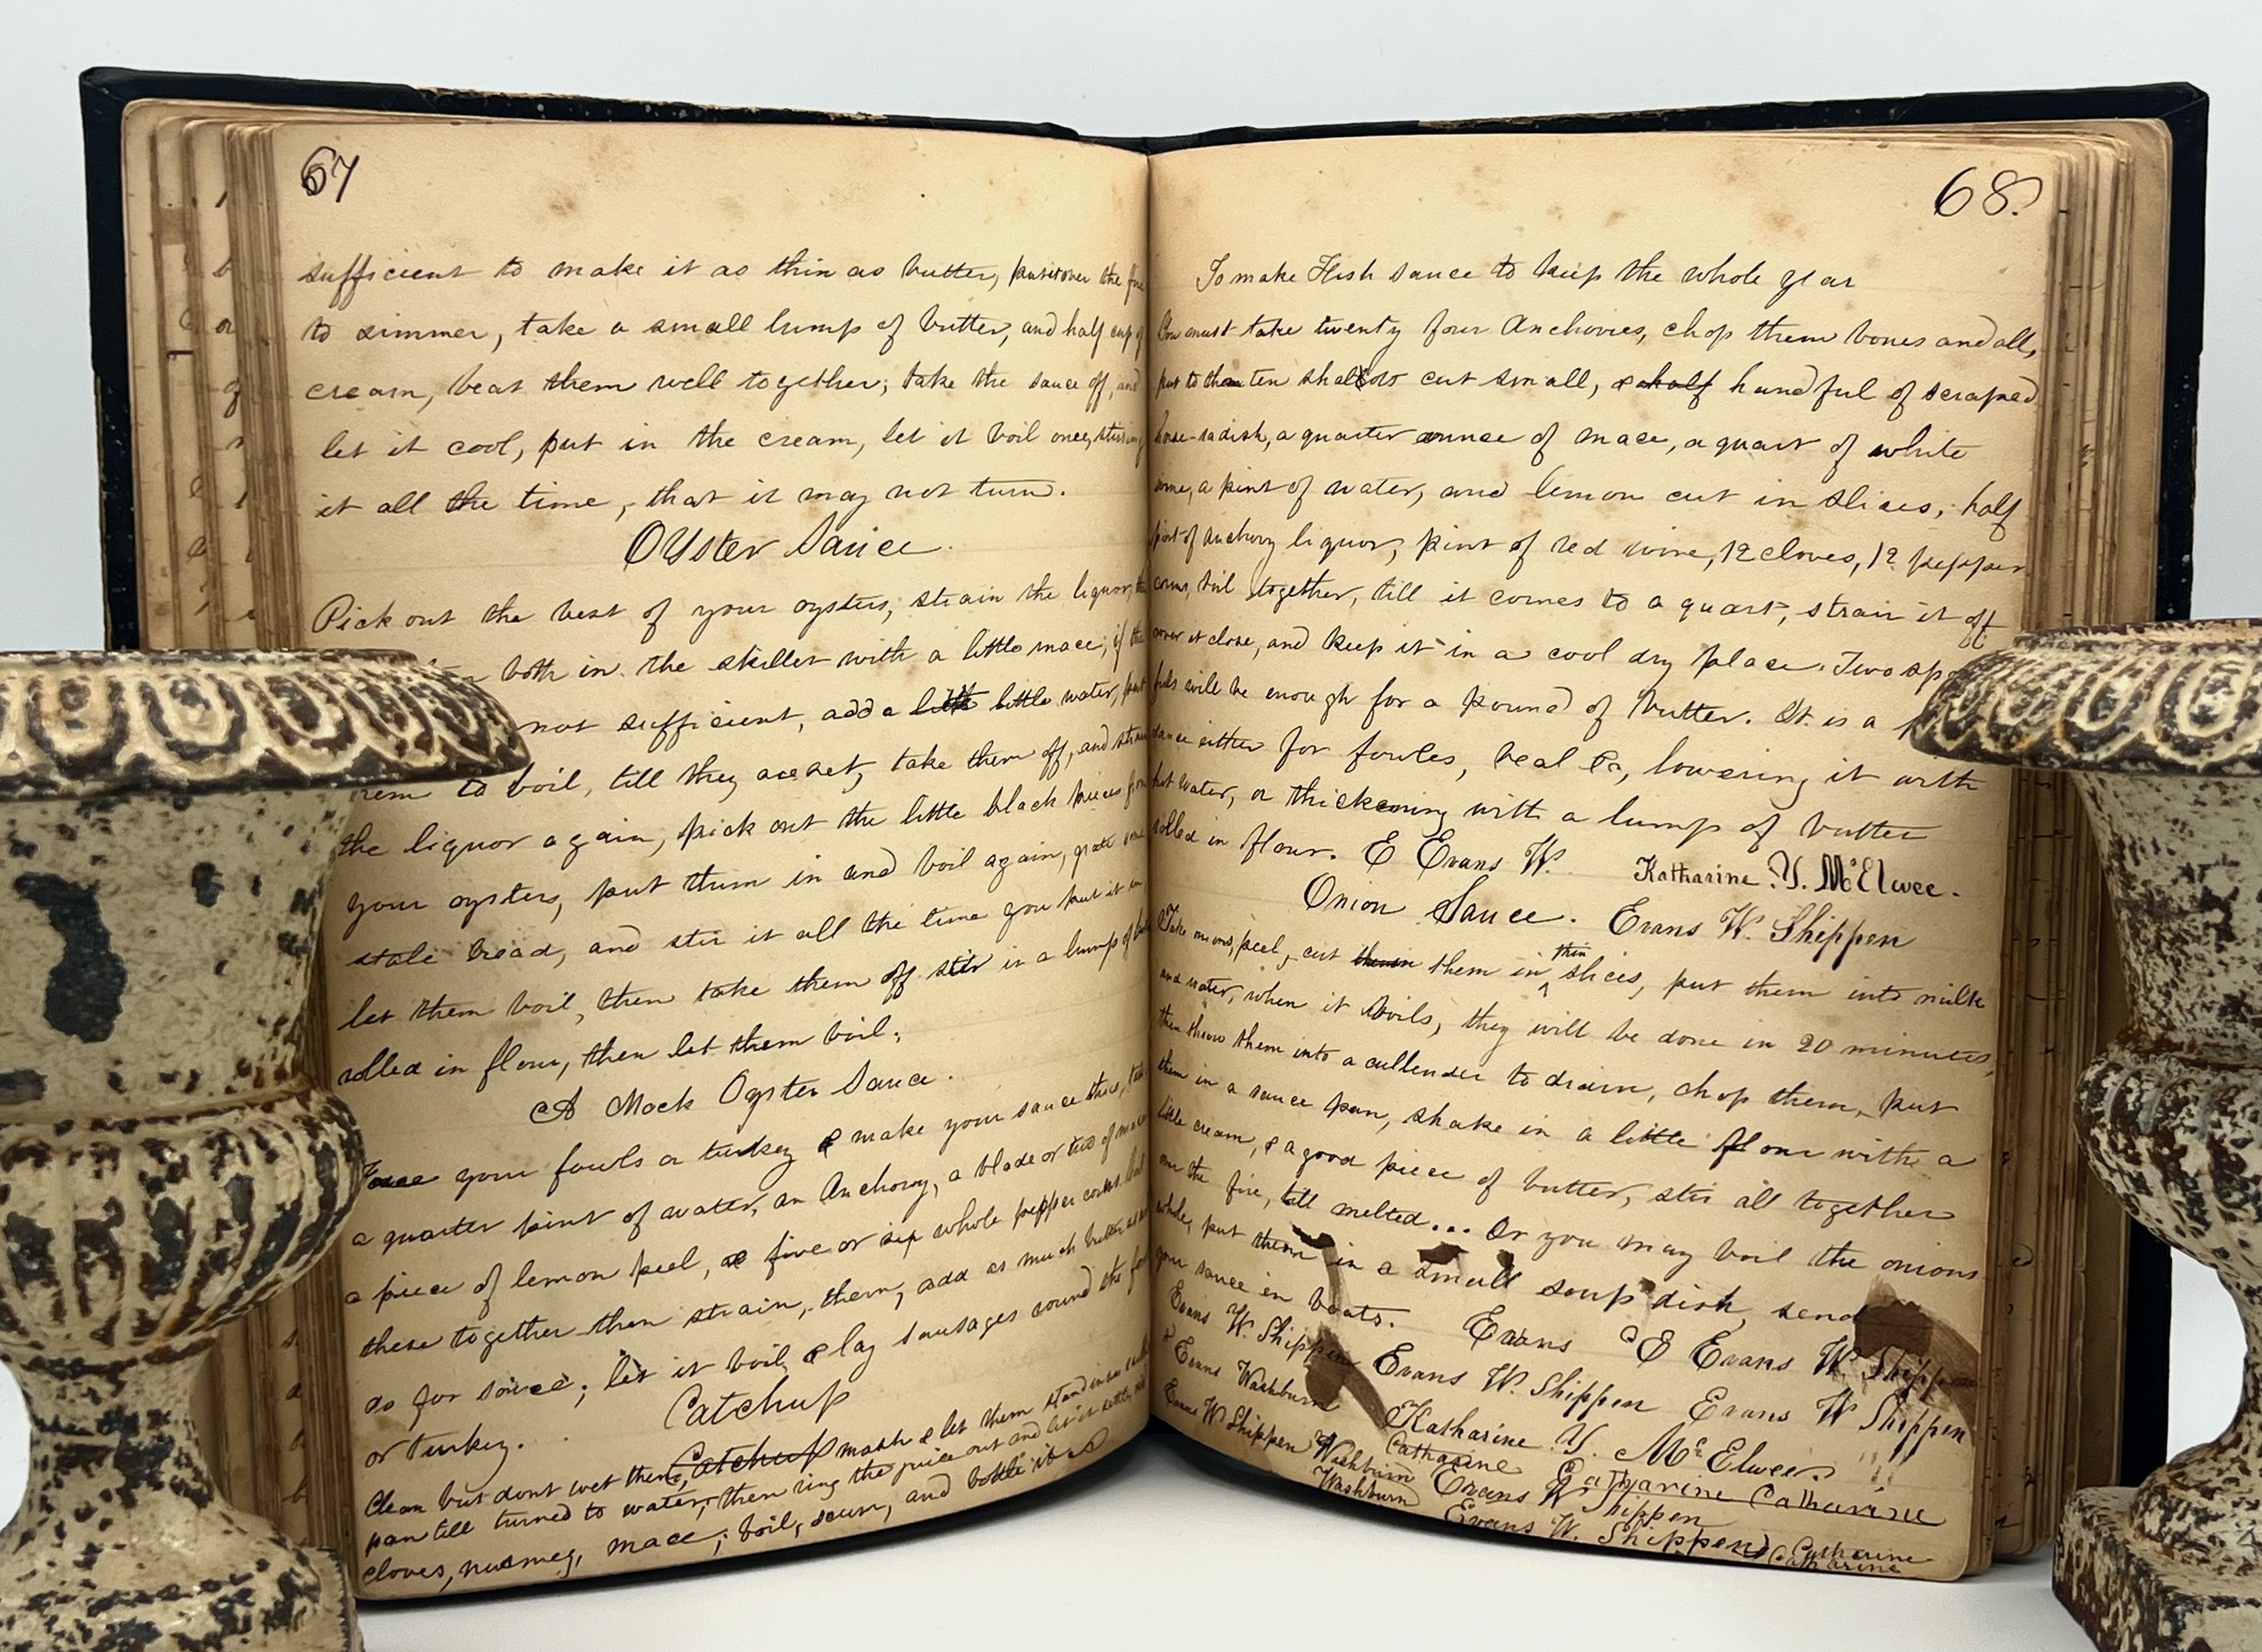 67
sufficient to make it as thin as butter, put it over the fire
to simmer, take a small lump of butter, and half cup of
cream, beat them well together; take the sauce off, and
let it cool, put in the cream, let it boil once, stirring
it all the time, that it may not turn.
Oyster Sauce.
Pick out the best of your oysters, strain the liquor,
both in the skillet with a little mace; if the
not sufficient, add a little little water, put
them to boil, till they are set, take them off, and strain
the liquor again, pick out the little black pieces from
your oysters, put them in and boil again, grate some
stale bread, and stir it all the time you put it in
let them boil, then take them off stir in a lump of
rolled in flour, then let them boil;
A Mock Oyster Sauce.
your fowls or turkey & make your sauce thus, take
a quarter pint of water, an Anchovy, a blade or two of mace
a piece of lemon peel, & five or six whole pepper corns boil
these together then strain, them, add as much butter as
as for sauce; let it boil & lay sausages round the
or Turkey.
Catchup
Clean but dont wet them, Catchup mash & let them stand in
pan till turned to water, then ring the juice out and let it settle,
cloves, nutmeg, mace; boil, scum, and bottle it
68.
To make Fish sauce to keep the whole year
You must take twenty four Anchovies, chop them bones and all,
put to them ten shallots cut small, a half handful of scraped
horse-radish, a quarter ounce of mace, a quart of white
wine, a pint of water, and lemon cut in slices, half
pint of anchovy liquor, pint of red wine, 12 cloves, 12 pepper
corns, boil together, till it comes to a quart, strain it off
cover it close, and keep it in a cool dry place. Two
fuls will be enough for a pound of butter. It is a
sauce either for fowles, veal &c, lowering it with
hot water, or thickening with a lump of butter
rolled in flour. E Evans W. Katharine. Y. McElwee.
Onion Sauce. Evans W. Shippen
Take onions, peel, cut them them in thin slices, put them into milk
and water, when it boils, they will be done in 20 minutes,
then throw them into a cullender to drain, chop them, put
them in a sauce pan, shake in a little flour with a
little cream, & a good piece of butter, stir all together
over the fire, till melted... Or you may boil the onions
whole, put them in a small soup dish, send
your sauce in boats. Evans E Evans W Shippen
Evans W. Shippen Evans W. Shippen Evans W Shippen
Evans Washburn Katharine Y. McElwee.
Evans W Shippen Washburn Catharine Catharine Catharine
Washburn Evans W Shippen
Evans W. Shippen Catharine
Catharine